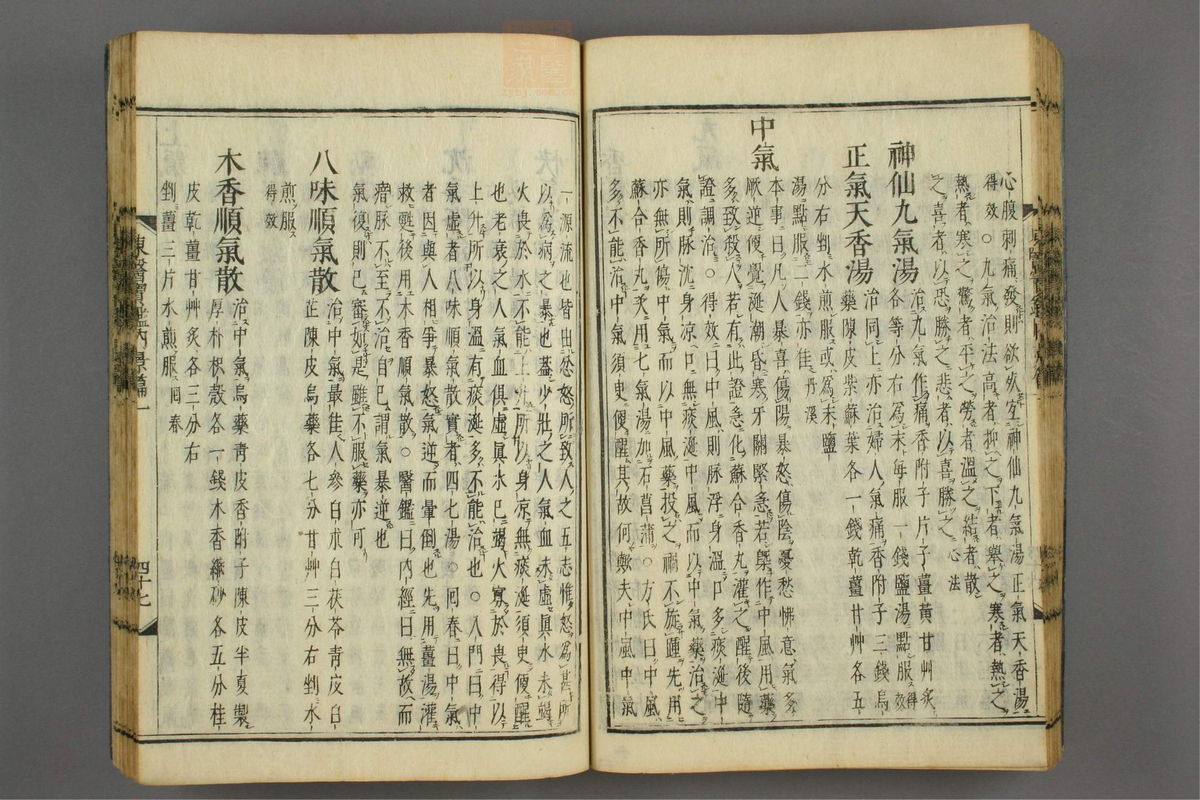 心腹刺痛發則欲死宜神仙九氣湯正氣天香湯
得效○九氣治法高者抑之下者舉之寒者熱之
熱者寒之驚者平之勞者溫之結者散
之喜者以恐勝之悲者以喜勝之心法
神仙九氣湯 治九氣作痛香附子片子薑黃甘艸炙
各等分右爲末每服一錢鹽湯點服得效
正氣天香湯 治同上亦治婦人氣痛香附子三錢烏
藥陳皮紫蘇葉各一錢乾薑甘艸各五
分右剉水煎服或爲末鹽
湯點服二錢亦佳丹溪
中氣
本事曰凡人暴喜傷陽暴怒傷陰憂愁怫意氣多
厥逆便覺涎潮昏塞牙關緊急若槩作中風用藥
多致殺人若有此證急化蘇合香丸灌之醒後隨
證調治○得效曰中風則脉浮身溫口多痰涎中
氣則脉沈身凉口無痰涎中風而以中氣藥治之
亦無所傷中氣而以中風藥投之禍不旋踵先用
蘇合香丸又用七氣湯加石菖蒲○方氏曰中風
多不能治中氣須臾便醒其故何歟夫中風中氣
一源流也皆由忿怒所致人之五志惟怒爲甚所
以爲病之暴也蓋少壯之人氣血未虛眞水未竭
火畏於水不能上升所以身凉無痰涎須臾便醒
也老衰之人氣血俱虛眞水已竭火寡於畏得以
上升所以身溫有痰涎多不能治也○入門曰中
氣虛者八味順氣散實者四七湯○回春曰中氣
者因與人相爭暴怒氣逆而暈倒也先用薑湯灌
救甦後用木香順氣散○醫鑑曰內經曰無故而
瘖脉不至不治自已謂氣暴逆也
氣復則已審如是雖不服藥亦可
八味順氣散 治中氣最佳人參白朮白茯苓青皮白
芷陳皮烏藥各七分甘艸三分右剉水
煎服
得效
木香順氣散 治中氣烏藥青皮香附子陳皮半夏製
厚朴枳殼各一錢木香縮砂各五分桂
皮乾薑甘艸炙各三分右
剉薑三片水煎服回春
東醫寶鑑內景篇一
四十七